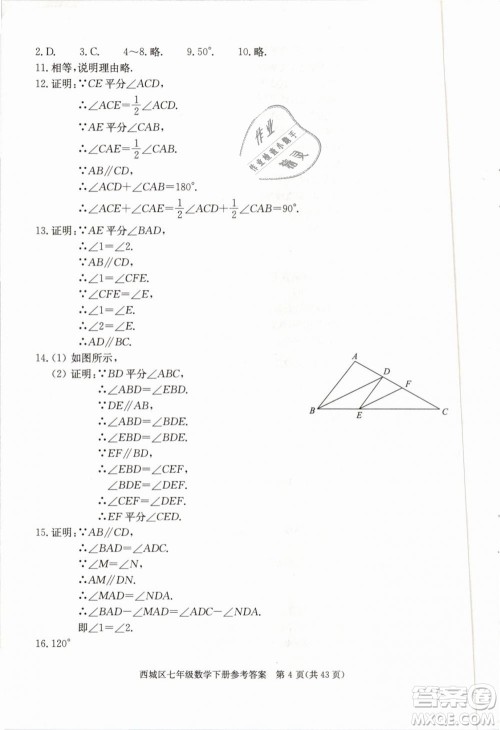 2.D.　3.C.　4～8.略.　9.50°　10.略.
11.相等,说明理由略.
12.证明:∵CE平分∠ACD,
∴∠ACE=1/2∠ACD.
∵AE平分∠CAB,
∴∠CAE=1/2∠CAB.
∵AB∥CD,
∴∠ACD+∠CAB=180°.
∴∠ACE+∠CAE=1/2∠ACD+1/2∠CAB=90°.
13.证明:∵AE平分∠BAD,
∴∠1=∠2.
∵AB∥CD,
∴∠1=∠CFE.
∵∠CFE=∠E,
∴∠1=∠E.
∴∠2=∠E.
∴AD∥BC.
14.(1) 如图所示,
(2) 证明:∵BD平分∠ABC,
∴∠ABD=∠EBD.
∵DE∥AB,
∴∠ABD=∠BDE.
∴∠EBD=∠BDE.
∵EF∥BD,
∴∠EBD=∠CEF,
∠BDE=∠DEF.
∴∠CEF=∠DEF.
∴EF平分∠CED.
A
D
F
B
E
C
15.证明:∵AB∥CD,
∴∠BAD=∠ADC.
∵∠M=∠N,
∴AM∥DN.
∴∠MAD=∠NDA.
∴∠BAD-∠MAD=∠ADC-∠NDA.
即∠1=∠2.
16.120°
西城区七年级数学下册参考答案　第4页(共43页)
作业
作业检查小助手
精灵